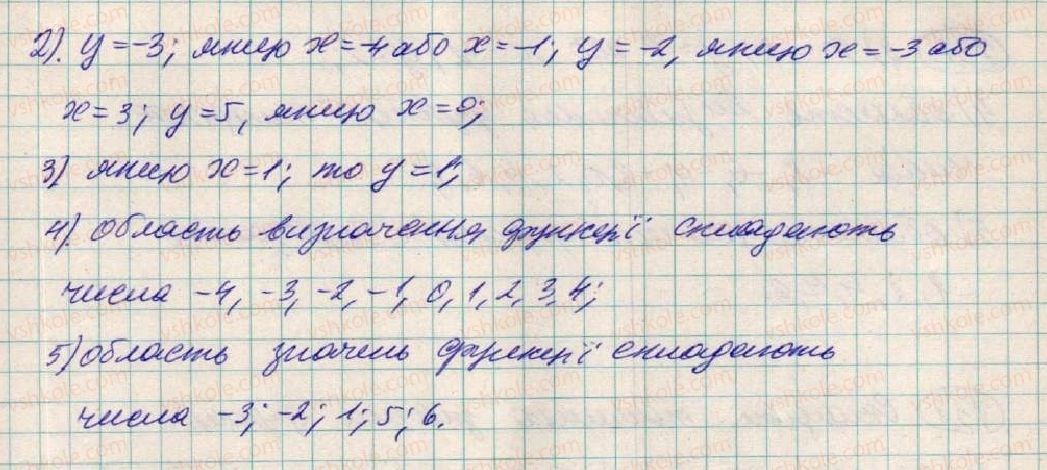 2). y = -3; якщо x = -4 або x = -1; y = -2, якщо x = -3 або
x = 3; y = 5, якщо x = 0;
3) якщо x = 1; то y = 1;
4). область визначення функції складають
числа -4, -3, -2, -1, 0, 1, 2, 3, 4;
5) область значень функції складають
числа -3; -2; 1; 5; 6.